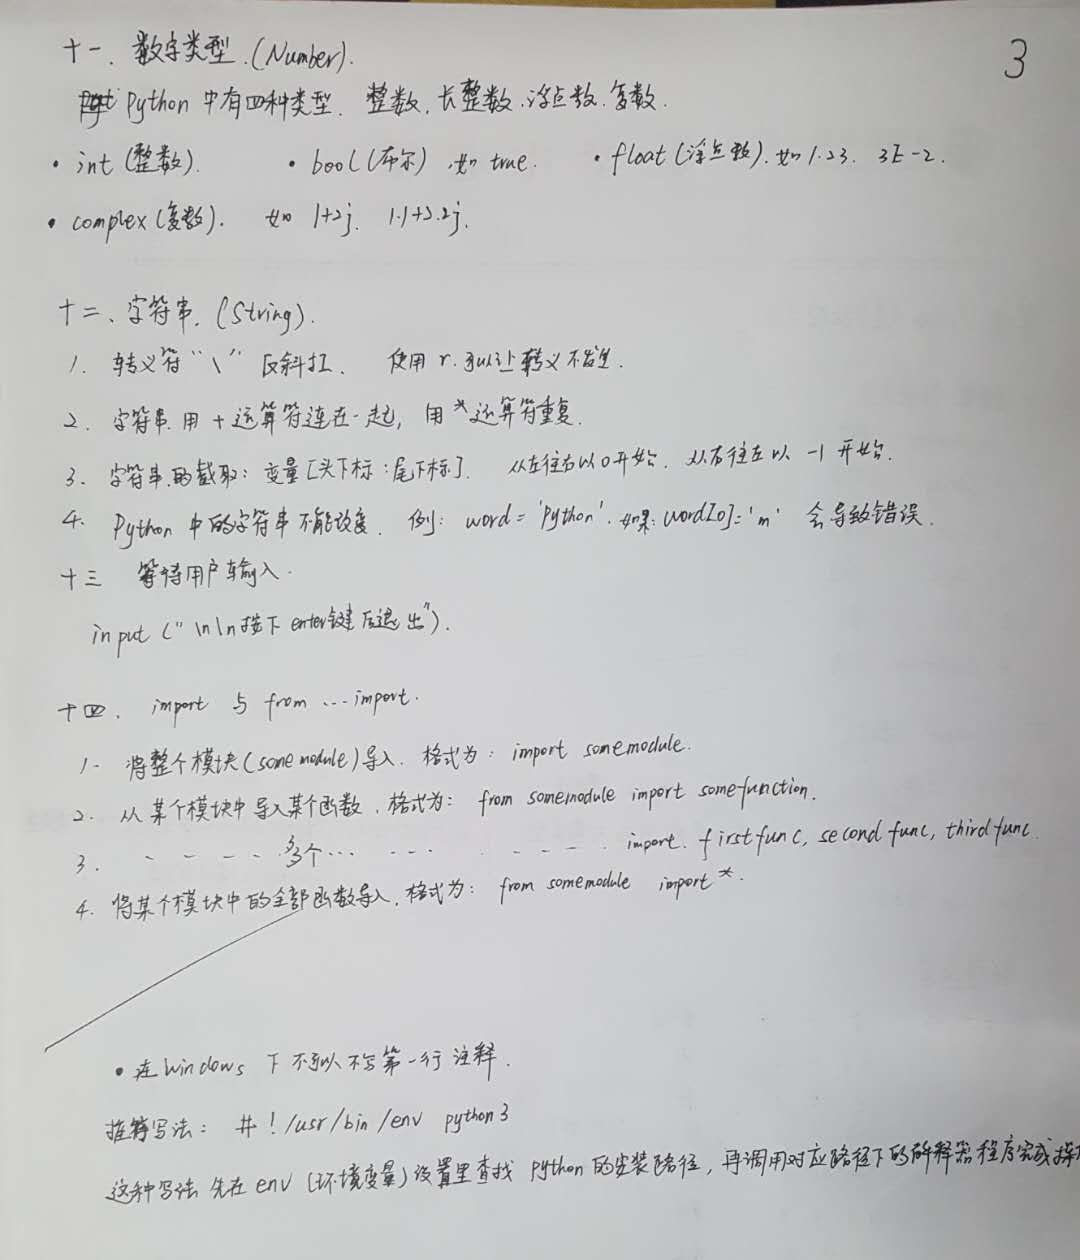 3
十一、数字类型.(Number).
Python 中有四种类型. 整数、长整数、浮点数、复数.
• int (整数). • bool (布尔), 如 true. • float (浮点数). 如 1.23. 3E-2.
• complex (复数). 如 1+2j. 1.1+2.2j.
十二、字符串. (String).
1. 转义符 "\" 反斜扛. 使用 r.可以让转义不发生.
2. 字符串用 + 运算符连在一起, 用 * 运算符重复.
3. 字符串的截取: 变量[头下标:尾下标]. 从左往右以0开始. 从右往左以 -1 开始.
4. Python 中的字符串不能改变. 例: word = 'Python'. 如果: word[0]='m' 会导致错误.
十三 等待用户输入.
input ("\n\n按下 enter键后退出").
十四. import 与 from ... import.
1. 将整个模块(somemodule)导入. 格式为: import somemodule.
2. 从某个模块中导入某个函数. 格式为: from somemodule import somefunction.
3. - - - - 多个... ... - - - - import. firstfunc, secondfunc, thirdfunc.
4. 将某个模块中的全部函数导入. 格式为: from somemodule import *.
• 在Windows 下 不可以不写第一行注释.
推荐写法: #!/usr/bin/env python3
这种写法 先在 env (环境变量) 设置里查找 python 的安装路径, 再调用对应路径下的解释器程序完成操